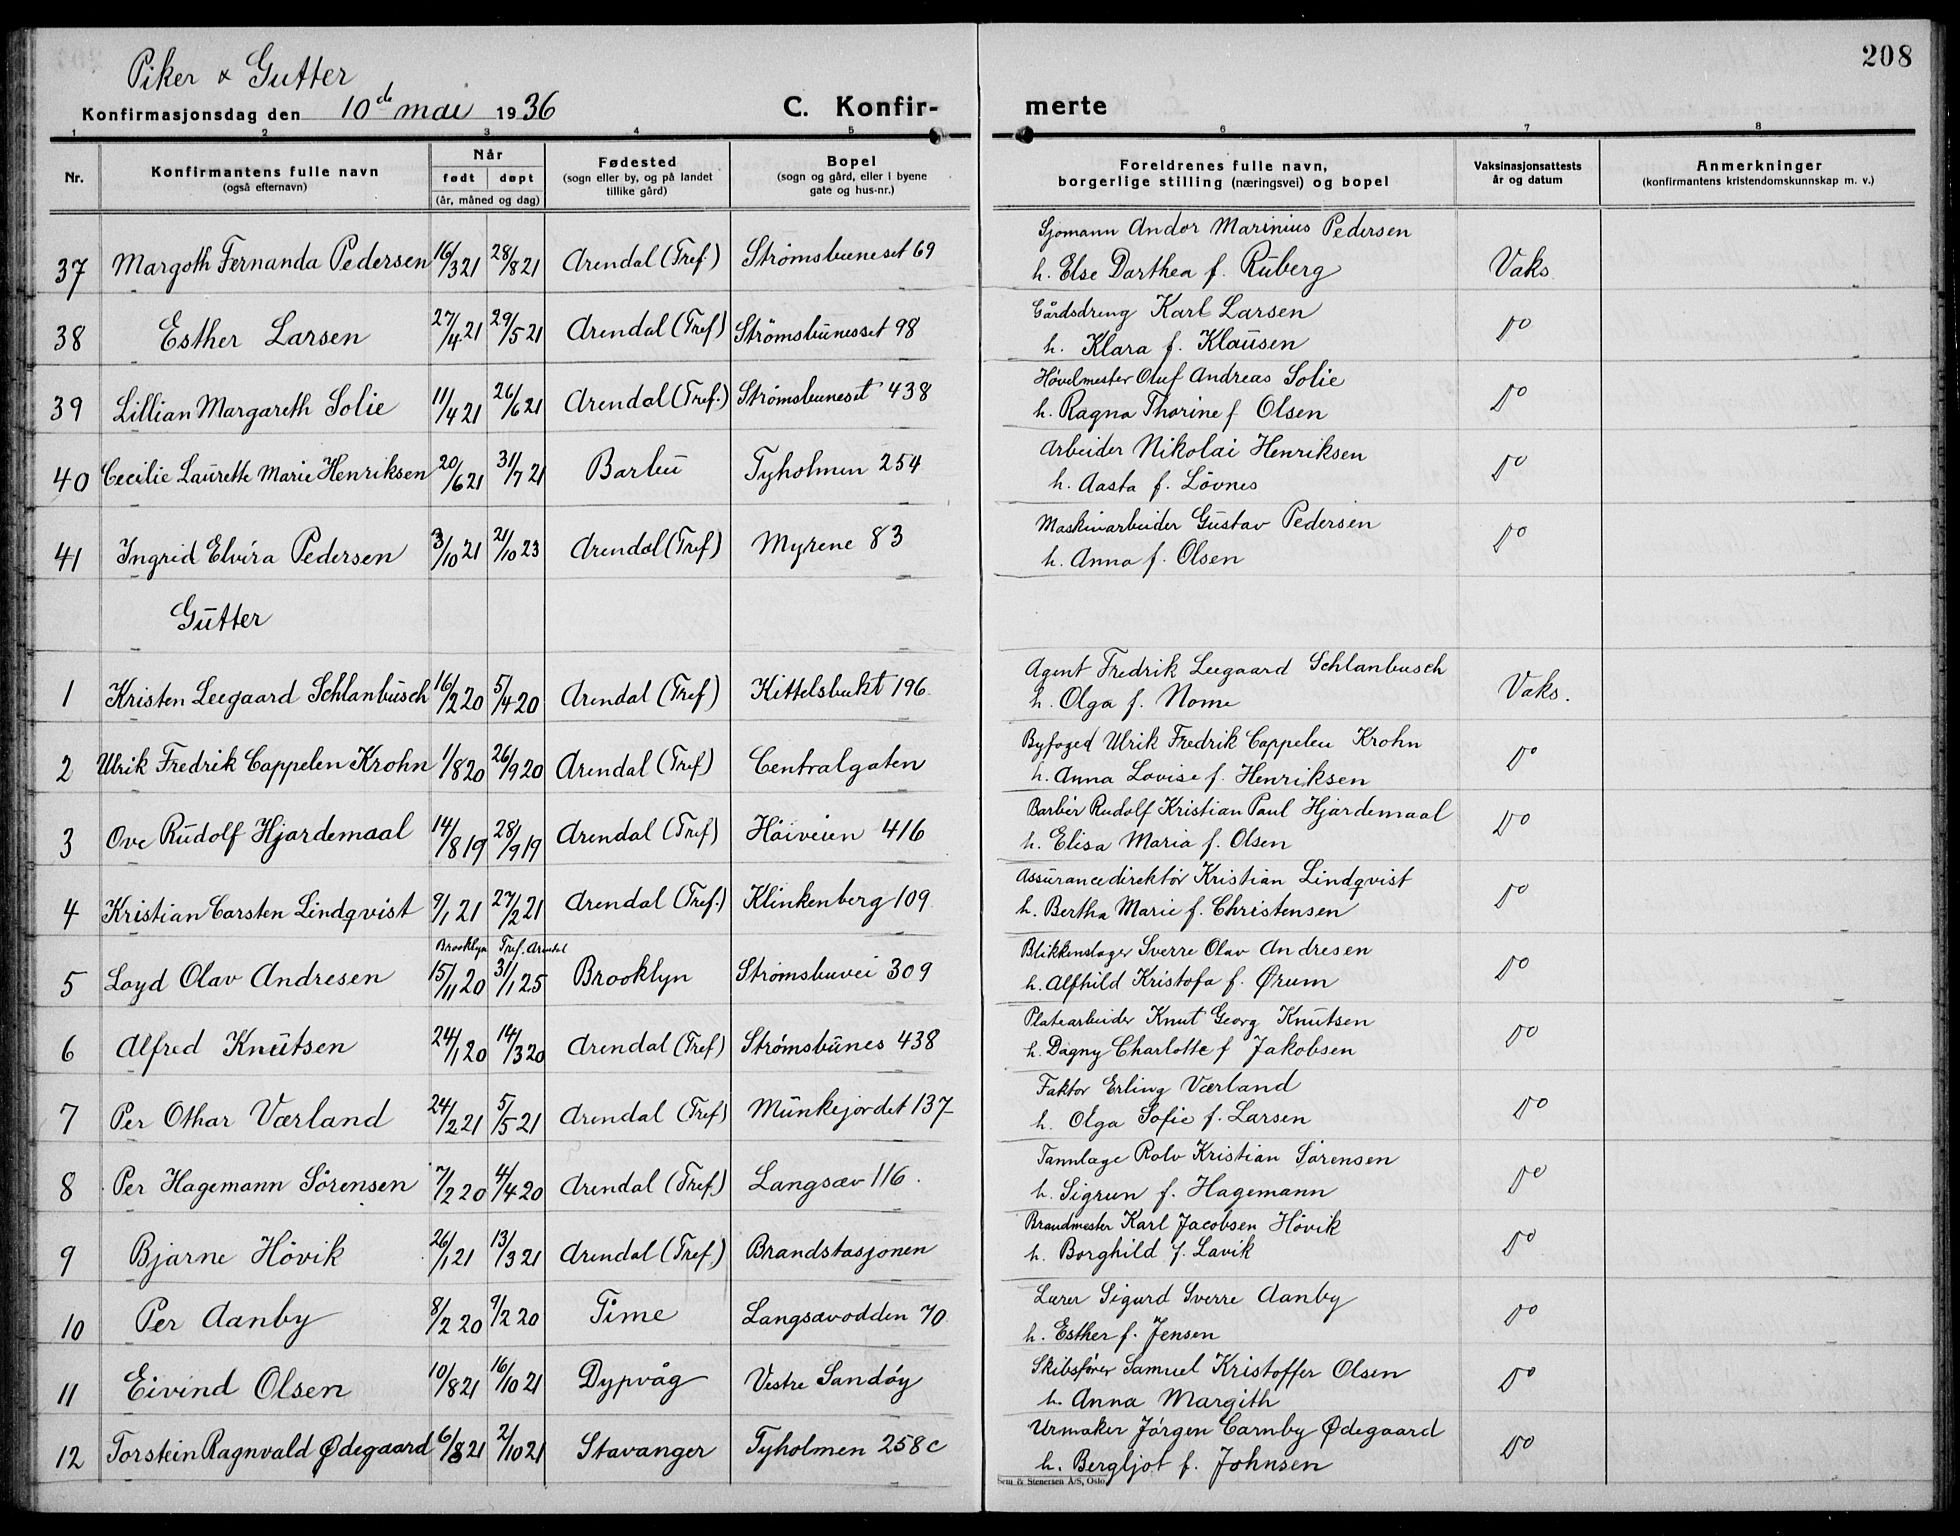 208
Piker & Gutter
Konfirmasjonsdag den 10de mai 1936 C. Konfirmerte
1 2 3 4 5 6 7 8
Nr. Konfirmantens fulle navn (også efternavn) Når født døpt (år, måned og dag) Fødested (sogn eller by, og på landet tillike gård) Bopel (sogn og gård, eller i byene gate og hus-nr.) Foreldrenes fulle navn, borgerlige stilling (næringsvei) og bopel Vaksinasjonsattests år og datum Anmerkninger (konfirmantens kristendomskunnskap m. v.)
Sjømann Andor Marinius Pedersen
37 Margoth Fernanda Pedersen 16/3 21 28/8 21 Arendal (Tref.) Strømsbuneset 69 h. Else Dorthea f. Ruberg Vaks.
Gårdsdreng Karl Larsen
38 Esther Larsen 27/4 21 29/5 21 Arendal (Tref) Strömsbunesset 98 h. Klara f. Klausen Do
Høvelmester Oluf Andreas Solie
39 Lillian Margareth Solie 11/4 21 26/6 21 Arendal (Tref.) Strømsbuneset 438 h. Ragna Thorine f Olsen Do
Arbeider Nikolai Henriksen
40 Cecilie Laurette Marie Henriksen 20/6 21 31/7 21 Barbu Tyholmen 254 h. Aasta f. Lövnes Do
Maskinarbeider Gustav Pedersen
41 Ingrid Elvira Pedersen 3/10 21 21/10 23 Arendal (Tref) Myrene 83 h. Anna f. Olsen Do
Gutter
Agent Fredrik Leegaard Schlanbusch
1 Kristen Leegaard Schlanbusch 16/2 20 5/4 20 Arendal (Tref) Kittelsbukt 196 h. Olga f. Nome Vaks.
Byfoged Ulrik Fredrik Cappelen Krohn
2 Ulrik Fredrik Cappelen Krohn 1/8 20 26/9 20 Arendal (Tref) Centralgaten h. Anna Lovise f. Henriksen Do
Barbér Rudolf Kristian Paul Hjardemaal
3 Ove Rudolf Hjardemaal 14/8 19 28/9 19 Arendal (Tref) Höiveien 416 h. Elisa Maria f. Olsen Do
Assurancedirektör Kristian Lindqvist
4 Kristian Carsten Lindqvist 9/1 21 27/2 21 Arendal (Tref.) Klinkenberg 109. h. Bertha Marie f. Christensen Do
Brooklyn Tref. Arendal Blikkenslager Sverre Olav Andresen
5 Loyd Olav Andresen 15/11 20 31/1 25 Brooklyn Strømsbuvei 309 h. Alfhild Kristofa f. Ørum Do
Platearbeider Knut Georg Knutsen
6 Alfred Knutsen 24/1 20 14/3 20 Arendal (Tref) Strømsbunes 438 h. Dagny Charlotte f Jakobsen Do
Faktor Erling Værland
7 Per Othar Værland 24/2 21 5/5 21 Arendal (Tref) Munkejordet 137 h. Olga Sofie f. Larsen Do
Tannlæge Rolv Kristian Sörensen
8 Per Hagemann Sörensen 7/2 20 4/4 20 Arendal (Tref.) Langsæv 116. h. Sigrun f. Hagemann Do
Brandmester Karl Jacobsen Hövik
9 Bjarne Hövik 26/1 21 13/3 21 Arendal (Tref.) Brandstasjonen h. Borghild f. Lavik Do
Lærer Sigurd Sverre Aanby
10 Per Aanby 8/2 20 9/2 20 Time Langsævodden 70 h. Esther f. Jensen Do
Skibsfører Samuel Kristoffer Olsen
11 Eivind Olsen 10/8 21 16/10 21 Dypvåg Vestre Sandöy h. Anna Margith Do
Urmaker Jörgen Carnby Ødegaard
12 Torstein Ragnvald Ødegaard 6/8 21 2/10 21 Stavanger Tyholmen 258 c h. Bergljot f. Johnsen Do
Sem & Stenersen A/S, Oslo